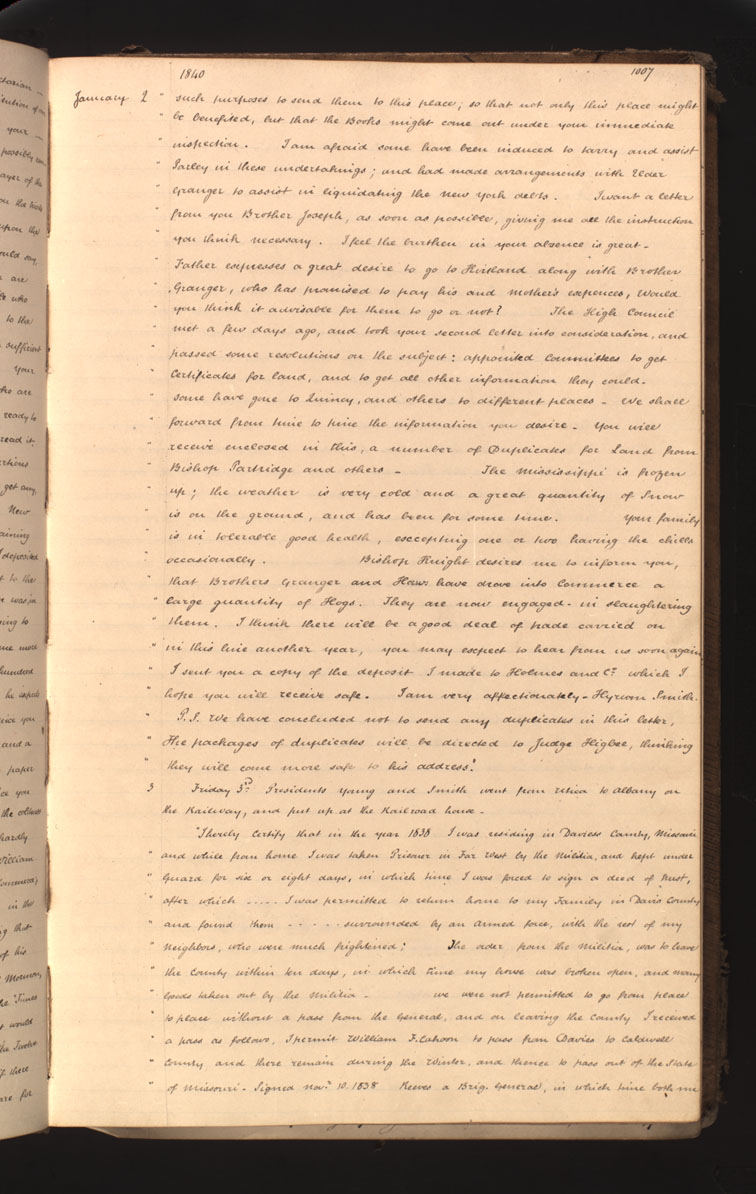 1840 1007
January 2 " such purposes to send them to this place; so that not only this place might
" be benefited, but that the Books might come out under your immediate
" inspection. I am afraid some have been induced to tarry and assist
" Parley in these undertakings; and had made arrangements with Elder
" Granger to assist in liquidating the New York debts. I want a letter
" from you Brother Joseph, as soon as possible, giving me all the instruction
" you think necessary. I feel the burthen in your absence is great -
" Father expresses a great desire to go to Kirtland along with Brother
" Granger, who has promised to pay his and mother's expences, Would
" you think it advisable for them to go or not? The High Council
" met a few days ago, and took your second letter into consideration, and
" passed some resolutions on the subject: appointed Committees to get
" Certificates for land, and to get all other information they could.
" some have gone to Quincy, and others to different places - We shall
" forward from time to time the information you desire - You will
" receive enclosed in this, a number of Duplicates for Land from
" Bishop Partridge and others - The Mississippi is frozen
" up; the weather is very cold and a great quantity of Snow
" is on the ground, and has been for some time. Your family
" is in tolerable good health, excepting one or two having the chills
" occasionally. Bishop Knight desires me to inform you,
" that Brothers Granger and Haws have drove into Commerce a
" large quantity of Hogs. They are now engaged - in slaughtering
" them. I think there will be a good deal of trade carried on
" in this line another year, you may expect to hear from us soon again
" I sent you a copy of the deposit I made to Holmes and Co. which I
" hope you will receive safe. I am very affectionately - Hyrum Smith.
" P.S. We have concluded not to send any duplicates in this letter,
" The packages of duplicates will be directed to Judge Higbee, thinking
" they will come more safe to his address."
3 Friday 3rd Presidents Young and Smith went from Utica to Albany on
the Railway, and put up at the Railroad house -
"I hereby Certify that in the year 1838 I was residing in Daviess County, Missouri
" and while from home I was taken Prisoner in Far West by the Militia, and kept under
" Guard for six or eight days, in which time I was forced to sign a deed of trust,
" after which ..... I was permitted to return home to my Family in Davis County
" and found them - - - - - surrounded by an armed force, with the rest of my
" Neighbors, who were much frightened; The order from the Militia, was to leave
" the County within ten days, in which time my house was broken open, and many
" Goods taken out by the Militia - we were not permitted to go from place
" to place without a pass from the General, and on leaving the County I received
" a pass as follows, I permit William F. Cahoon to pass from Davies to Caldwell
" County, and there remain during the Winter, and thence to pass out of the State
" of Missouri - Signed Novr. 10. 1838 Reeves a Brig. General, in which time both me